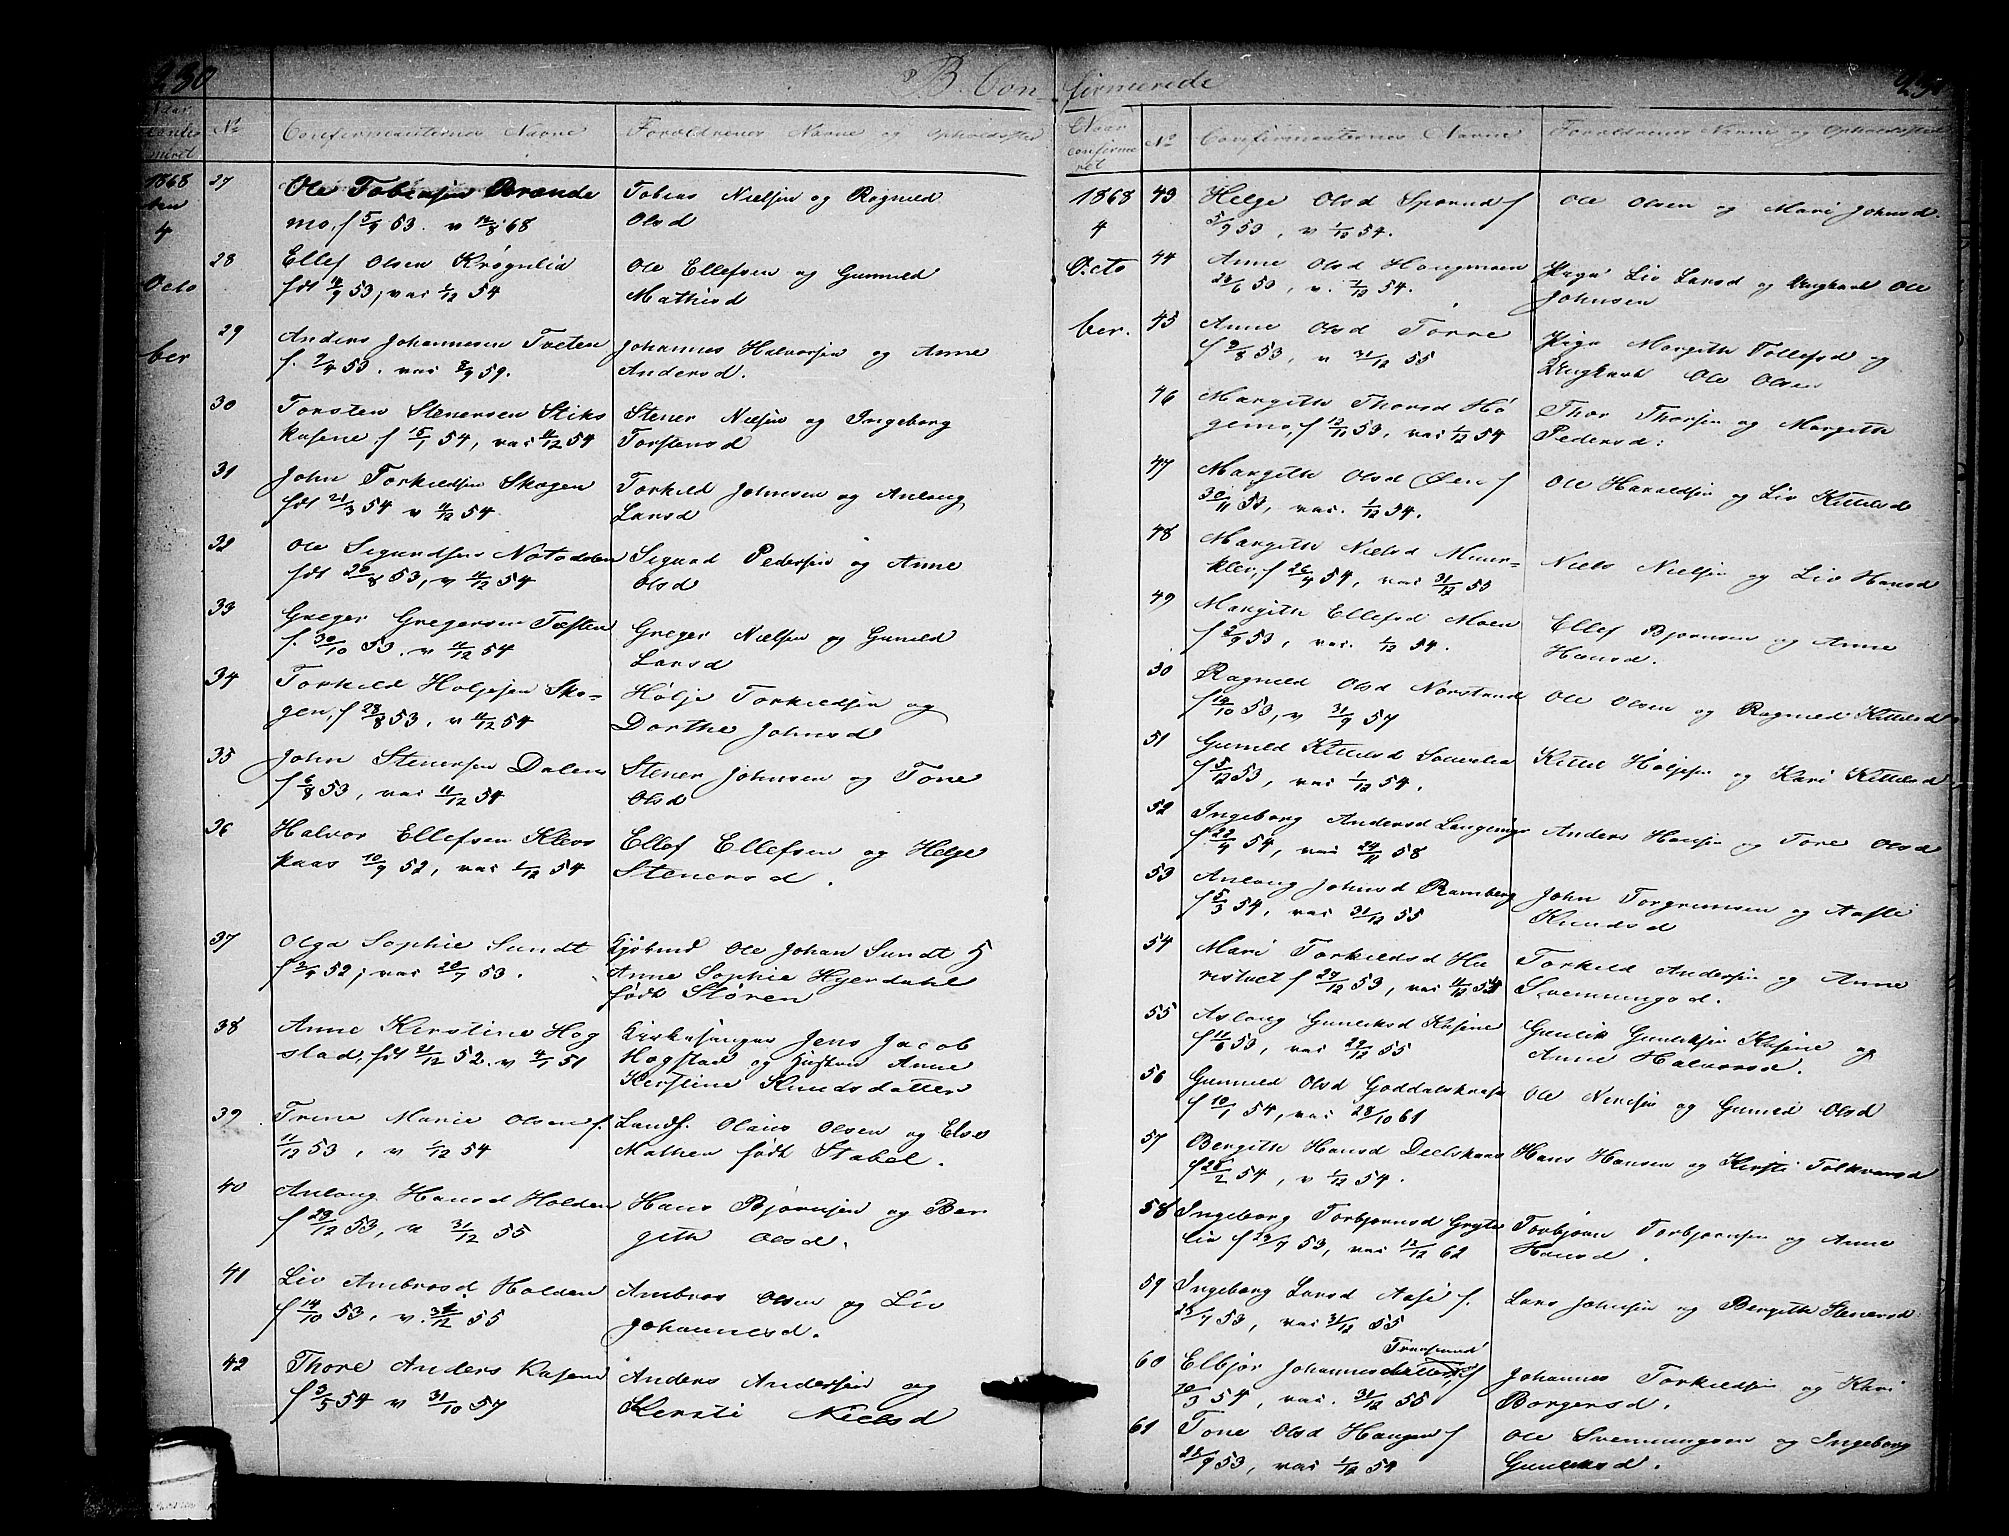 230
B. Con
Naar confirmeret
No
Confirmanternes Navne
Forældrenes Navne og Opholdssted
1868
den
4
Octo
ber
27
Ole Tobiassen Brænde
mo, f 5/9 53. v 12/8 68
Tobias Nielsen og Ragnild
Olsd
28
Ellef Olsen Krogulid
fdt 11/9 53, vac 1/12 54
Ole Ellefsen og Gunnild
Mathisd
29
Anders Johannesen Tveten
f. 2/4 53. vac 8/9 59.
Johannes Halvorsen og Anne
Andersd.
30
Torsten Stenersen Stiks
kasene, f 15/1 54, vac 11/12 54
Stener Nielsen og Ingeborg
Torstensd
31
John Torkildsen Skogen
fdt 21/3 54 v 11/12 54
Torkild Johnsen og Anlaug
Larsd
32
Ole Sigurdsen Notodden
fdt 20/8 53, v 11/12 54
Sigurd Pedersen og Anne
Olsd
33
Greger Gregersen Tæften
f. 30/10 53. v 11/12 54
Greger Nielsen og Gunild
Larsd
34
Torkild Holjesen Sko-
gen, f 28/8 53. v 11/12 54
Hølje Torkildsen og
Dorthe Johnsd
35
John Stenersen Dalene
f 6/8 53, vac 11/12 54
Stener Johnsen og Tone
Olsd
36
Halvor Ellefsen Klevs
kaas 10/9 52, vac 1/12 54
Ellef Ellefsen og Helge
Stenersd.
37
Olga Sophie Sundt
f 2/4 52, vac 20/7 53.
Kjøbmd Ole Johan Sundt H
Anne Sophie Hyerdahl
født Støren
38
Anne Kerstine Hog
stad, fdt 21/12 52. v 4/1 51
Kirkesanger Jens Jacob
Hogstad og Hustru Anne
Kerstine Knudsdatter
39
Trine Marie Olsen f.
11/12 53, v 1/12 54
Landh. Olaus Olsen og Else
Mathea født Stabel.
40
Anlaug Hansd Holden
f 23/12 53, v 31/12 55
Hans Bjørnsen og Ber
geth Olsd.
41
Liv Ambrosd Holden
f 14/10 53, v. 31/12 55
Ambros Olsen og Liv
Johannesd.
42
Thore Anders Kasene
f 3/5 54 v 31/10 57
Anders Andersen og
Kersti Nielsd
firmerede
Naar confirmeret
No
Confirmanternes Navne
Forældrenes Navne og Opholdssted
1868
4
Octo
ber.
43
Helge Olsd Spærud f
5/9 53, v 1/12 54.
Ole Olsen og Mari Johnsd.
44
Anne Olsd Haugmoen
26/6 53, v. 1/12 54.
Pige Liv Larsd og Ungkarl Ole
Johnsen
45
Anne Olsd Torve
f 9/8 53, v 31/12 55
Pige Margith Tollefsd og
Ungkarl Ole Olsen
46
Margith Thorsd Hø
gemo, f 12/11 53, vac 1/12 54
Thor Thorsen og Margith
Pedersd.
47
Margith Olsd Øen f
30/11 53, vac. 1/12 54.
Ole Haraldsen og Liv Kittelsd
48
Margith Nielsd Muur-
klev, f 26/4 54, vac 31/12 55
Niels Nielsen og Liv Hansd
49
Margith Ellefsd Moen
f 2/9 53, vac. 1/12 54.
Ellef Bjørnsen og Anne
Hansd.
50
Ragnild Olsd Norstrand
f 12/10 53, v 31/9 57
Ole Olsen og Ragnild Kittelsd
51
Gunild Kittelsd
f 5/12 53, vac 1/12 54.
Kittel Høljesen og Kari Kittelsd
52
Ingeborg Andersd
f. 23/4 54, vac 24/11 58
Anders Hansen og Tone Olsd
53
Anlaug Johnsd Ramberg
f 5/3 54, vac 31/12 55
John Torgrimsen og Aasli
Knudsd
54
Mari Torkildsd Hu
vistvet f 27/12 53, vac 11/12 54
Torkild Andersen og Anne
Svennungsd.
55
Aslaug Gunliksd Kasene
f 11/6 53, vac 29/12 55
Gunlik Gunliksen Kasene og
Anne Halvorsd.
56
Gunnild Olsd
f 10/1 54, vac 29/10 61
Ole Nirisen og Gunild Olsd
57
Bergith Hansd Deelskaas
f 25/2 54, v 1/12 54.
Hans Hansen og Kirsti Folkvarsd
58
Ingeborg Torbjørnsd Gryte
lid f 29/7 53, vac 12/12 62
Torbjørn Torbjørnsen og Anne
Hansd.
59
Ingeborg Larsd Aase f.
23/7 53, vac 31/12 55
Lars Johnsen og Bergith Stenersd
60
Elbjør Johannesdatter f
10/3 54, vac. 31/12 55
Johannes Torkildsen og Kari
Borgersd.
61
Tone Olsd Haugen f
22/9 53, vac 1/12 54
Ole Svennungsen og Ingeborg
Gunliksd.